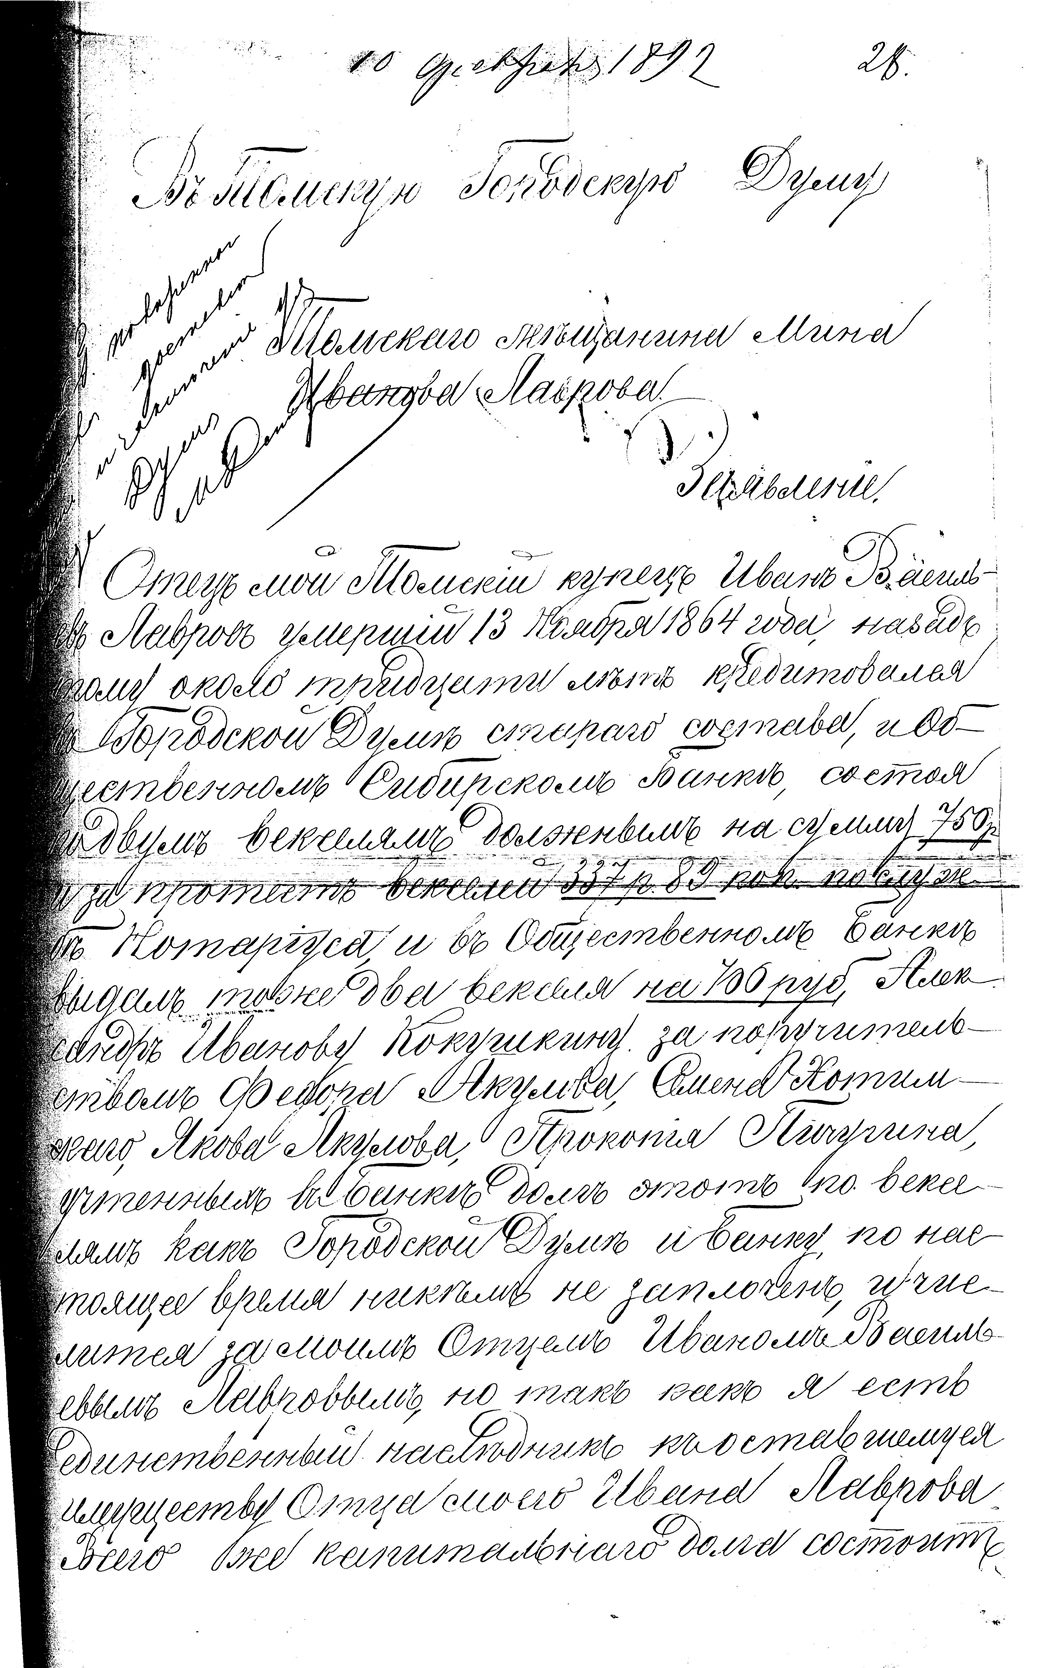 10 1892 28.
Въ Томскую Городскую Думу
Томскаго мѣщанина Мина
Иванова Лаврова
Заявленіе.
Отецъ мой Томскій купецъ Иванъ Василь-
евъ Лавровъ умершій 13 Ноября 1864 года, назадъ
тому около тридцати лѣтъ кредитовался
въ Городской Думѣ стараго состава, и Об-
щественномъ Сибирскомъ Банкѣ, состоя
по двумъ векселямъ должнымъ на сумму 750 р
и за протестъ векселей 337 р 89 коп
Нотаріуса, и въ Общественномъ Банкѣ
выдалъ тоже два векселя на 700 руб, Алек-
сандръ Иванову Кокушкину за поручитель-
ствомъ Федора Акулова, Семена Хотим-
скаго, Якова Акулова, Прокопія Пичугина,
учтеннымъ въ Банкѣ долгъ этотъ по вексе-
лямъ какъ Городской Думѣ и Банку, по нас-
тоящее время никѣмъ не заплоченъ, и чис-
лится за моимъ Отцемъ Иваномъ Василь-
евымъ Лавровымъ, но такъ какъ я есть
единственный наслѣдникъ къ оставшемуся
имуществу Отца моего Ивана Лаврова
Всего же капитальнаго долга состоитъ